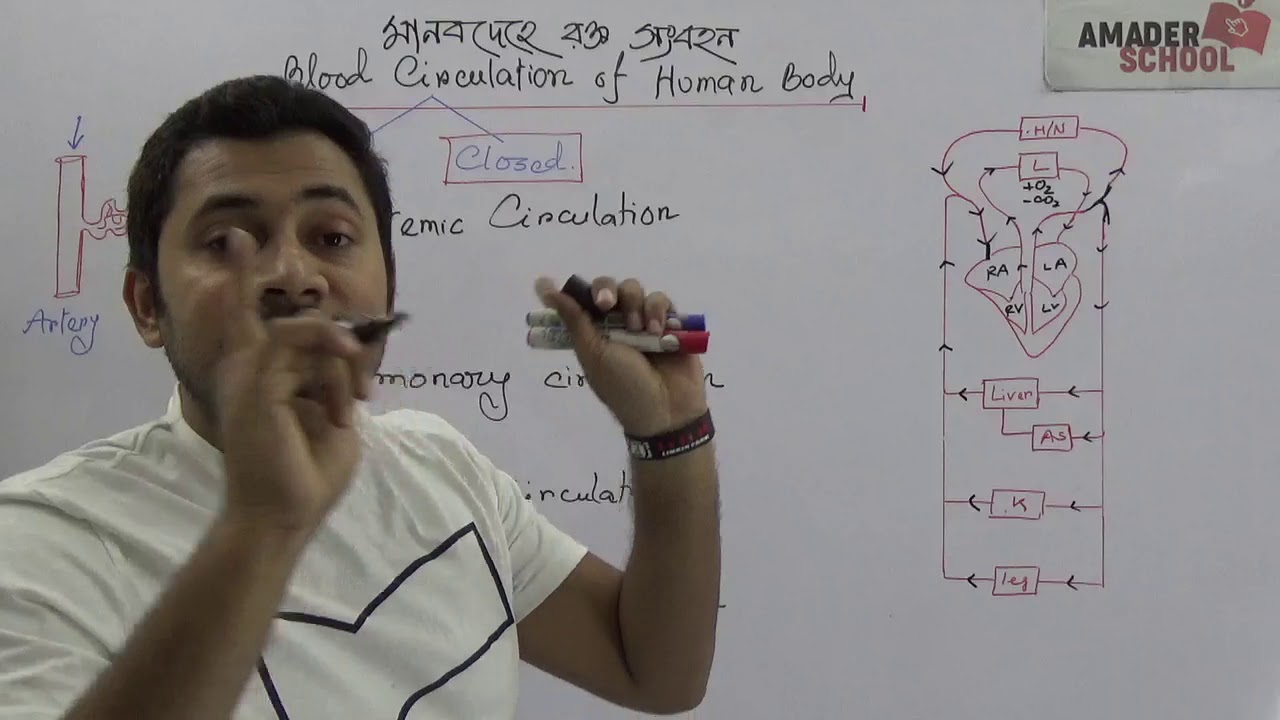 মানবদেহে রক্ত সংবহন
Blood Circulation of Human Body
AMADER
SCHOOL
Closed.
temic Circulation
Artery
monary
H/N
L
+O2
-CO2
RA
LA
RV
LV
Liver
AS
K
leg